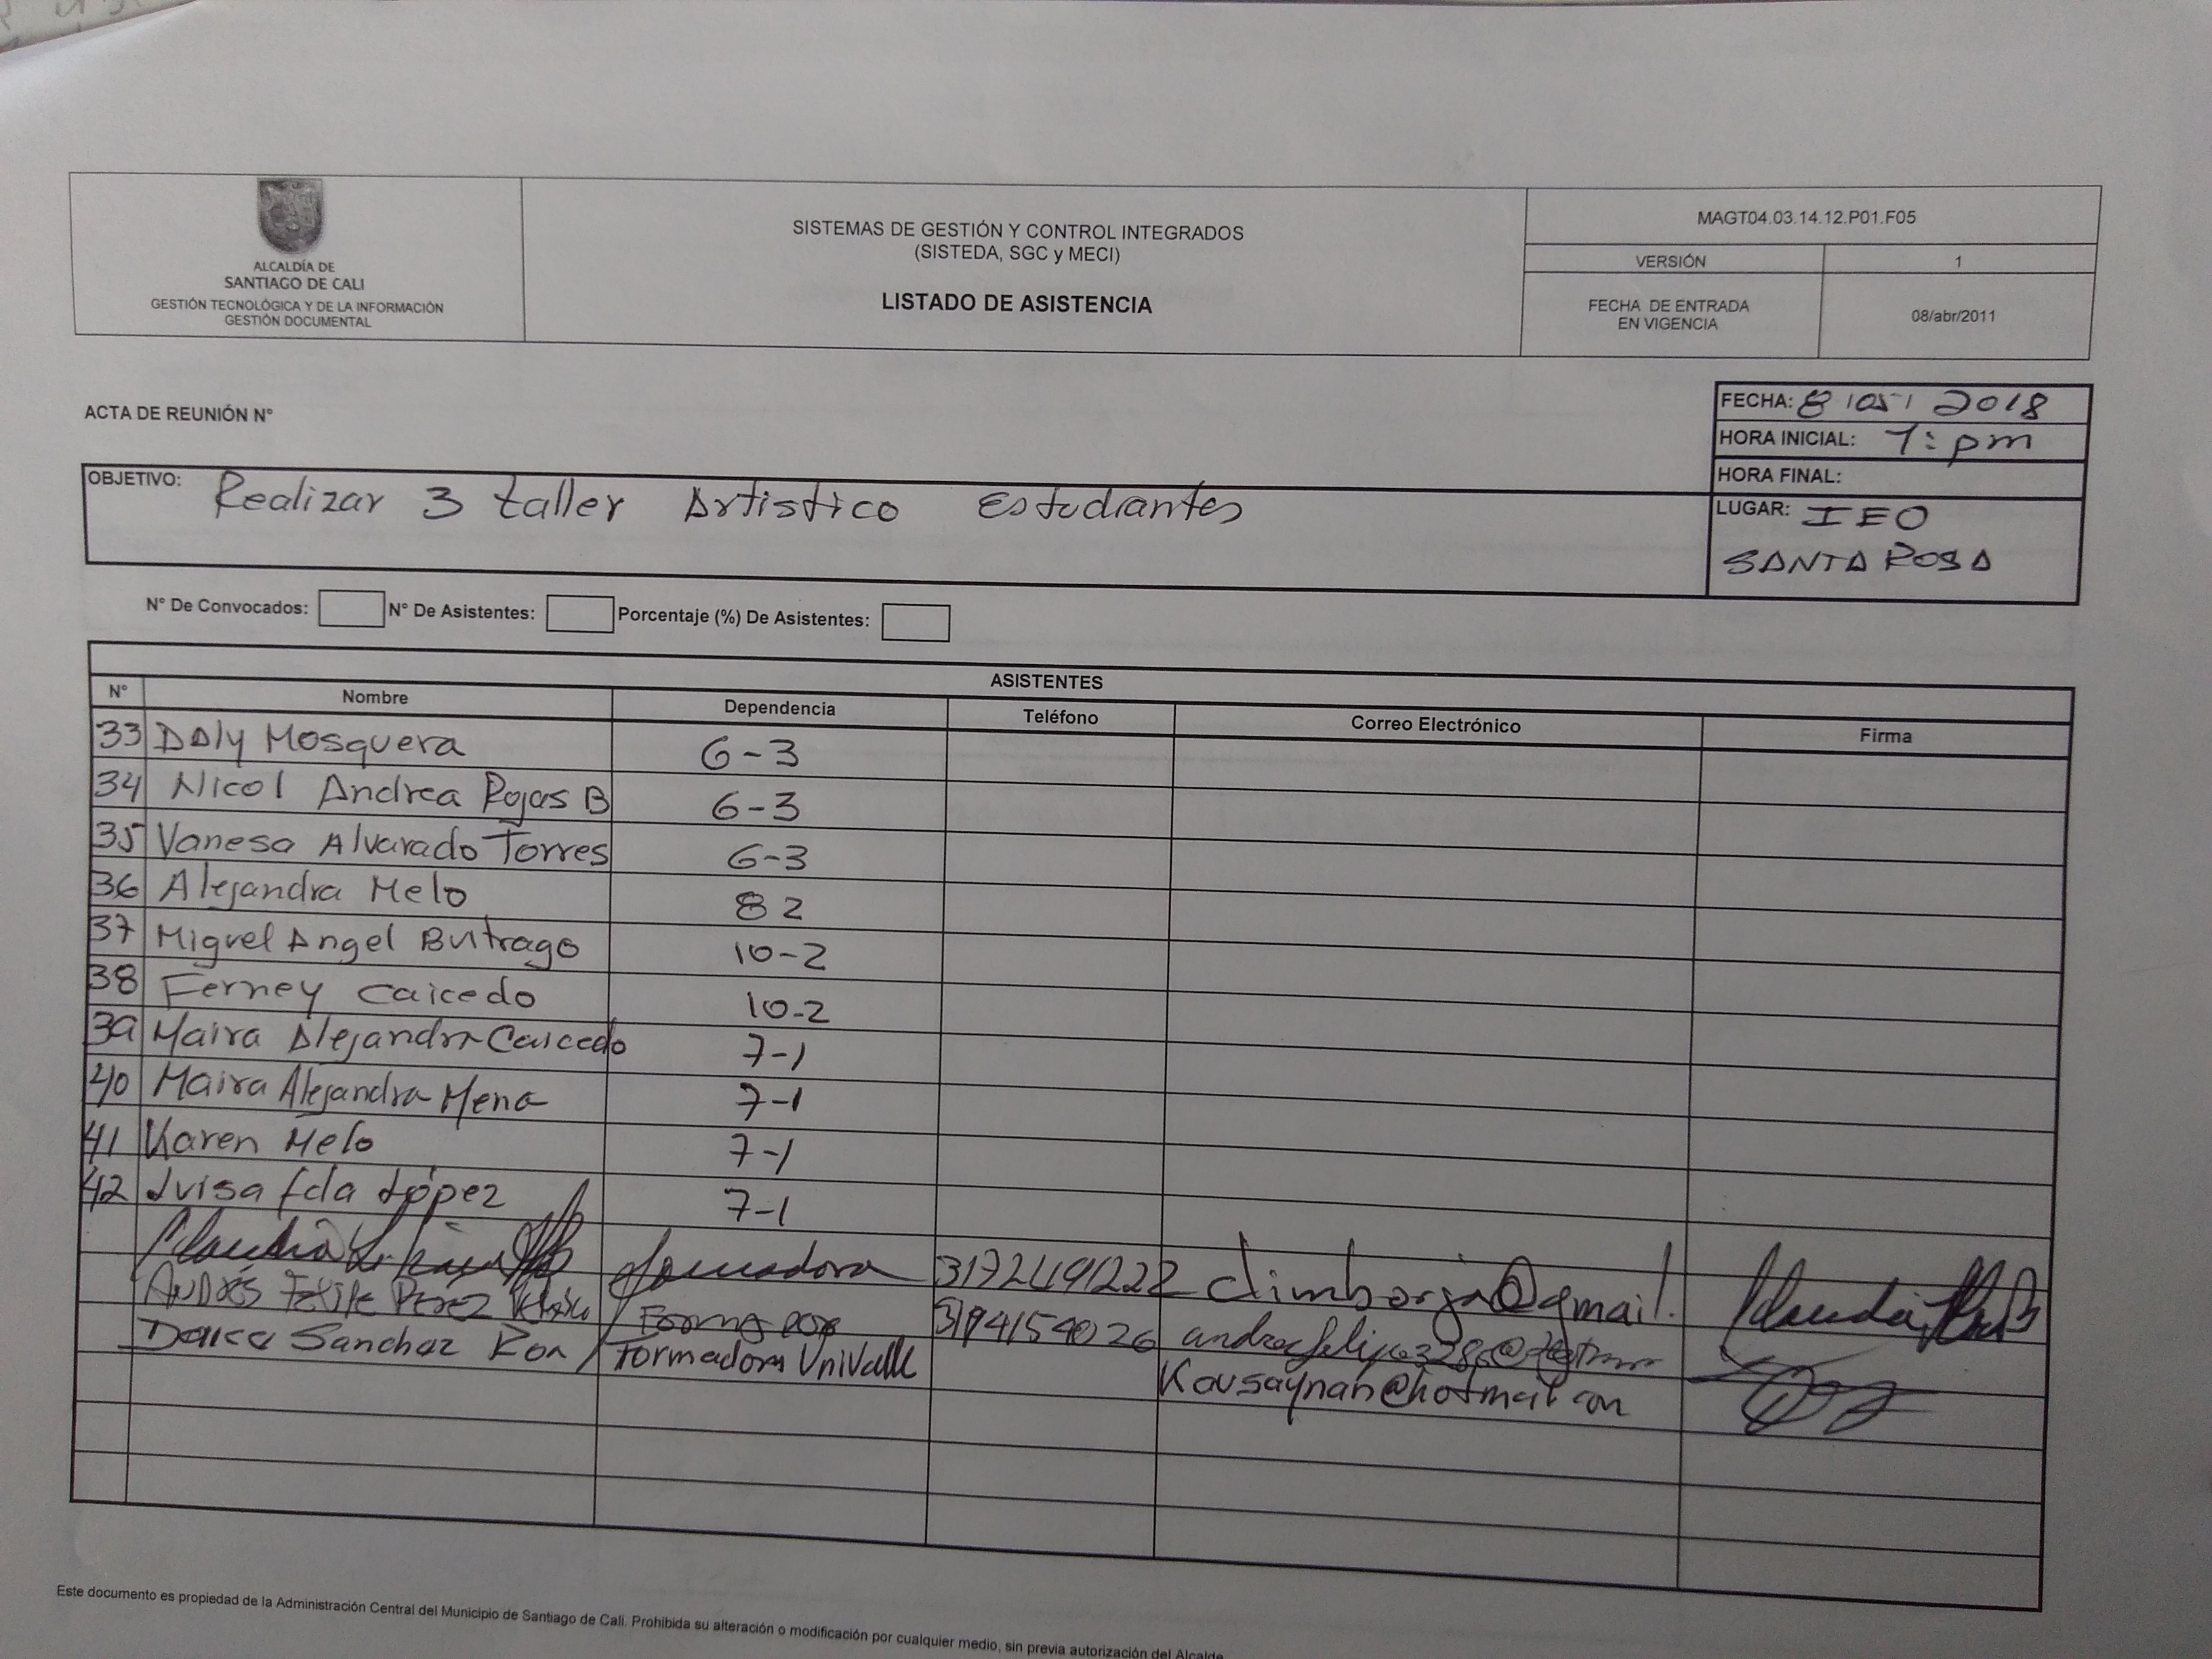 ALCALDÍA DE
SANTIAGO DE CALI
GESTIÓN TECNOLÓGICA Y DE LA INFORMACIÓN
GESTIÓN DOCUMENTAL
SISTEMAS DE GESTIÓN Y CONTROL INTEGRADOS
(SISTEDA, SGC y MECI)
LISTADO DE ASISTENCIA
MAGT04.03.14.12.P01.F05
VERSIÓN 1
FECHA DE ENTRADA
EN VIGENCIA
08/abr/2011
ACTA DE REUNIÓN N°
FECHA: 8/05/2018
HORA INICIAL: 1: pm
HORA FINAL:
LUGAR: IEO
SANTA ROSA
OBJETIVO: Realizar 3 taller Artistico Estudiantes
N° De Convocados: N° De Asistentes: Porcentaje (%) De Asistentes:
ASISTENTES
N° Nombre Dependencia Teléfono Correo Electrónico Firma
33 Daly Mosquera 6-3
34 Nicol Andrea Rojas B 6-3
35 Vanesa Alvarado Torres 6-3
36 Alejandra Melo 8 2
37 Miguel Angel Buitrago 10-2
38 Ferney Caicedo 10-2
39 Maira Alejandra Caicedo 7-1
40 Maira Alejandra Mena 7-1
41 Karen Melo 7-1
42 Luisa fda López 7-1
Claudia formadora
Andrés Felipe Perez Formador 3194154026
Sanchez Formadora Univalle Kausaynan@hotmail.com
Este documento es propiedad de la Administración Central del Municipio de Santiago de Cali. Prohibida su alteración o modificación por cualquier medio, sin previa autorización del Alcalde